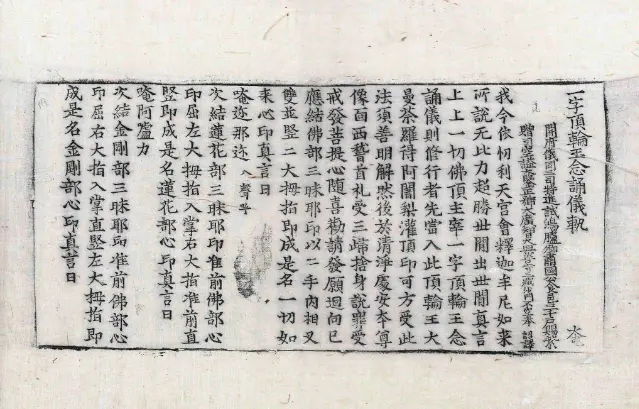 一字頂輪王念誦儀軌 本
開府儀同三司特進試鴻臚卿肅國公食邑三千戶賜紫
贈司空謚大鑒正號大廣智大興善寺三藏沙門不空奉 詔譯
我今依忉利天宮會釋迦牟尼如來
所說无比力超勝世間出世間真言
上上一切佛頂主宰一字頂輪王念
誦儀則修行者先當入此頂輪王大
曼荼羅得阿闍梨灌頂印可方受此
法須善明解然後於清淨處安本尊
像面西稽首礼受三歸捨身說罪受
戒發菩提心随喜勸請發願迴向已
應結佛部三昧耶印以二手內相叉
雙並竪二大拇指印成是名一切如
来心印真言曰
唵迩那迩
次結蓮花部三昧耶印准前佛部心
印屈左大拇指入掌右大指准前直
竪即成是名蓮花部心印真言曰
唵阿盧力
次結金剛部三昧耶印准前佛部心
印屈右大指入掌直竪左大拇指即
成是名金剛部心印真言曰